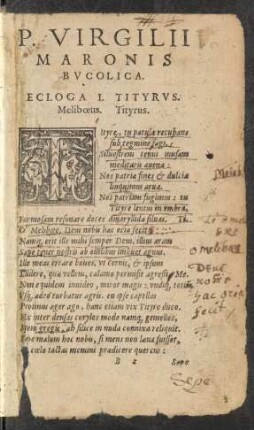 P. VIRGILII
MARONIS
BVCOLICA.
ECLOGA I. TITYRVS.
Melibœus. Tityrus.
Ityre, tu patulæ recubans
sub tegmine fagi,
Siluestrem tenui musam
meditaris auena:
Nos patriæ fines & dulcia
linquimus arua.
Nos patriam fugimus: tu
Tityre lentus in umbra,
Formosam resonare doces Amaryllida siluas. Ti.
O Melibœe, Deus nobis hæc ocia fecit:
Namq; erit ille mihi semper Deus, illius aram
Sæpe tener nostris ab ouilibus imbuet agnus.
Ille meas errare boues, ut cernis, & ipsum
Ludere, quæ vellem, calamo permisit agresti. Me.
Non equidem inuideo, miror magis: undiq; totis
Vsq; adeo turbatur agris. en ipse capellas
Protinus æger ago, hanc etiam vix Tityre duco.
Hic inter densas corylos modo namq; gemellos,
Spem gregis, ah silice in nuda connixa reliquit.
Sæpe malum hoc nobis, si mens non læua fuisset,
cælo tactas memini prædicere quercus:
B 2 Sæpe
o melibœe
Deus
nobis
hæc
fecit
Sepe